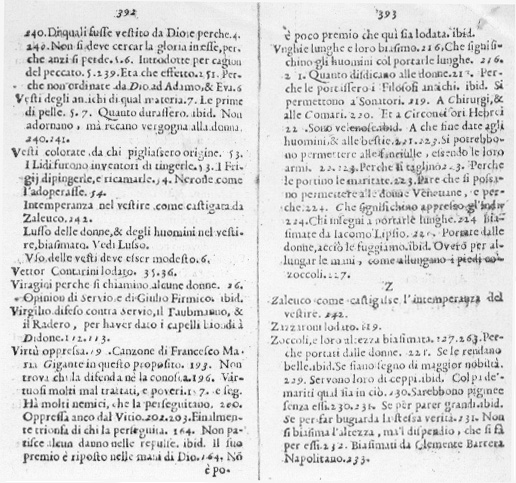 392
240. Di quali fusse vestito da Dio: e perche. 4.
240. Non si deve cercar la gloria in esse, per-
che anzi si perde. 5. 6. Introdotte per cagion
del peccato. 5. 239. Eta che effetto. 251. Per-
che non ordinate da Dio ad Adamo, & Eva. 6
Vesti degli antichi di qual materia. 7. Le prime
di pelle. 5. 7. Quanto durassero. ibid. Non
adornano, ma recano vergogna alla donna.
240. 241.
Vesti colorate da chi pigliassero origine. 53.
I Lidi furono inventori di tingerle. I Fri-
gij dipingerle, e ricamarle. 54. Nerone come
l'adoperasse. 54.
Intemperanza nel vestire come castigata da
Zaleuco. 242.
Lusso delle donne, & degli huomini nel vesti-
re, biasimato. Vedi Lusso.
Vso delle vesti deve esser modesto. 6.
Vettor Contarini lodato. 35. 36.
Viragini perche si chiamino alcune donne. 26.
Opinion di Servio, e di Giulio Firmico. ibid.
Virgilio difeso contra Servio, il Taubmanno, &
il Radero, per haver dato i capelli biondi à
Didone. 112. 113.
Virtù oppressa. 19. Canzone di Francesco Ma-
ria Gigante in questo proposito. 193. Non
trova chi la difenda nè la conosca. 196. Vir-
tuosi molti mal trattati, e poveri. e seg.
Hà molti nemici, che la perseguitano. 200.
Oppressa anco dal Vitio. 202. 203. Finalmen-
te trionfa di chi la perseguita. 164. Non pa-
tisce alcun danno nelle repulse. ibid. Il suo
premio è riposto nelle mani di Dio. 164. Nõ
è po-
393
è poco premio che quì sia lodata. ibid.
Vnghie lunghe e loro biasimo. 216. Che signifi-
chino gli huomini col portarle lunghe. 216.
Quanto disdicano alle donne. Per-
che le portissero i Filosofi antichi. ibid. Si
permettono a' Sonatori. 219. A Chirurgi, &
alle Comari. 220. Et a Circoncisori Hebrei
22. Sono velenose. ibid. A che fine date agli
huomini, & alle bestie. 221. 223. Si potrebbo-
no permettere alle fanciulle, essendo le loro
armi. Perche si taglino. Perche
le portino le maritate. 223. Pare che si possa-
no permettere alle donne Venetiane, e per-
che. 224. Che significhino appresso gl'Indi
224. Chi insegni a portarle lunghe. 224. Bia-
simate da Iacomo Lipsio. Portate dalle
donne, acciò le fuggiamo. ibid. Overò per al-
lungar le mani, come allungano i piedi co'
zoccoli. 227.
Z
Zaleuco come castigasse l'intemperanza del
vestire. 242.
Zizzaroni lodato. 119.
Zoccoli, e loro altezza biasimata. 127. 263. Per-
che portati dalle donne. 221. Se le rendano
belle. ibid. Se siano segno di maggior nobiltà.
229. Servono loro di ceppi. ibid. Colpa de'
mariti qual sia in ciò. 230. Sarebbono piginee
senza essi. 230. 231. Se per parer grandi. ibid.
Se per far bugiarda la stessa verità. 231. Non
si biasima l'altezza, ma'l dispendio, che si fà
per essi. 232. Biasimati da Clemente Barrera
Napolitano. 233.